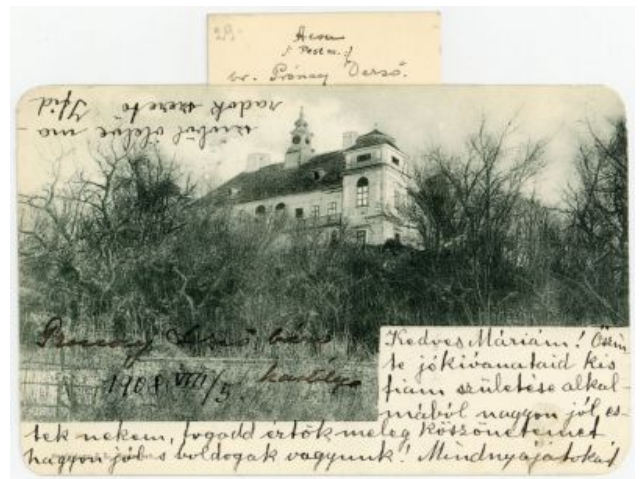 29.
Acsa
/: Pest m. :/
br. Prónay Dezső.
szívből ölelve ma-
radok szerető
Prónay Dezső báró
1908 VIII/5. kastélya
Kedves Máriám! Őszin
te jókívánataid kis
fiam születése alkal-
mából nagyon jól es-
tek nekem, fogadd értök meleg köszönetemet
nagyon jól s boldogak vagyunk! Mindnyájatokat